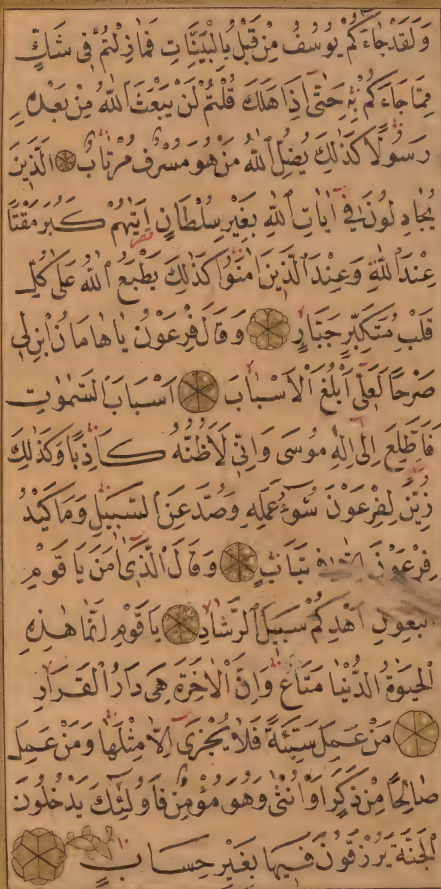 وَلَقَدْ جَاءَكُمْ يُوسُفُ مِنْ قَبْلُ بِالْبَيِّنَاتِ فَمَا زِلْتُمْ فِى شَكٍّ
مِمَّا جَاءَكُمْ بِهِ حَتّٰى اِذَا هَلَكَ قُلْتُمْ لَنْ يَبْعَثَ اللّٰهُ مِنْ بَعْدِهِ
رَسُولًا كَذٰلِكَ يُضِلُّ اللّٰهُ مَنْ هُوَ مُسْرِفٌ مُرْتَابٌ اَلَّذِينَ
يُجَادِلُونَ فِى اٰيَاتِ اللّٰهِ بِغَيْرِ سُلْطَانٍ اَتٰيهُمْ كَبُرَ مَقْتًا
عِنْدَ اللّٰهِ وَعِنْدَ الَّذِينَ اٰمَنُوا كَذٰلِكَ يَطْبَعُ اللّٰهُ عَلٰى كُلِّ
قَلْبِ مُتَكَبِّرٍ جَبَّارٍ وَقَالَ فِرْعَوْنُ يَا هَامَانُ ابْنِ لِى
صَرْحًا لَعَلِّى اَبْلُغُ الْاَسْبَابَ اَسْبَابَ السَّمٰوَاتِ
فَاَطَّلِعَ اِلٰى اِلٰهِ مُوسٰى وَاِنِّى لَاَظُنُّهُ كَاذِبًا وَكَذٰلِكَ
زُيِّنَ لِفِرْعَوْنَ سُوءُ عَمَلِهِ وَصُدَّ عَنِ السَّبِيلِ وَمَا كَيْدُ
فِرْعَوْنَ اِلَّا فِى تَبَابٍ وَقَالَ الَّذِى اٰمَنَ يَا قَوْمِ
اتَّبِعُونِ اَهْدِكُمْ سَبِيلَ الرَّشَادِ يَا قَوْمِ اِنَّمَا هٰذِهِ
الْحَيٰوةُ الدُّنْيَا مَتَاعٌ وَاِنَّ الْاٰخِرَةَ هِىَ دَارُ الْقَرَارِ
مَنْ عَمِلَ سَيِّئَةً فَلَا يُجْزٰى اِلَّا مِثْلَهَا وَمَنْ عَمِلَ
صَالِحًا مِنْ ذَكَرٍ اَوْ اُنْثٰى وَهُوَ مُؤْمِنٌ فَاُولٰئِكَ يَدْخُلُونَ
الْجَنَّةَ يُرْزَقُونَ فِيهَا بِغَيْرِ حِسَابٍ